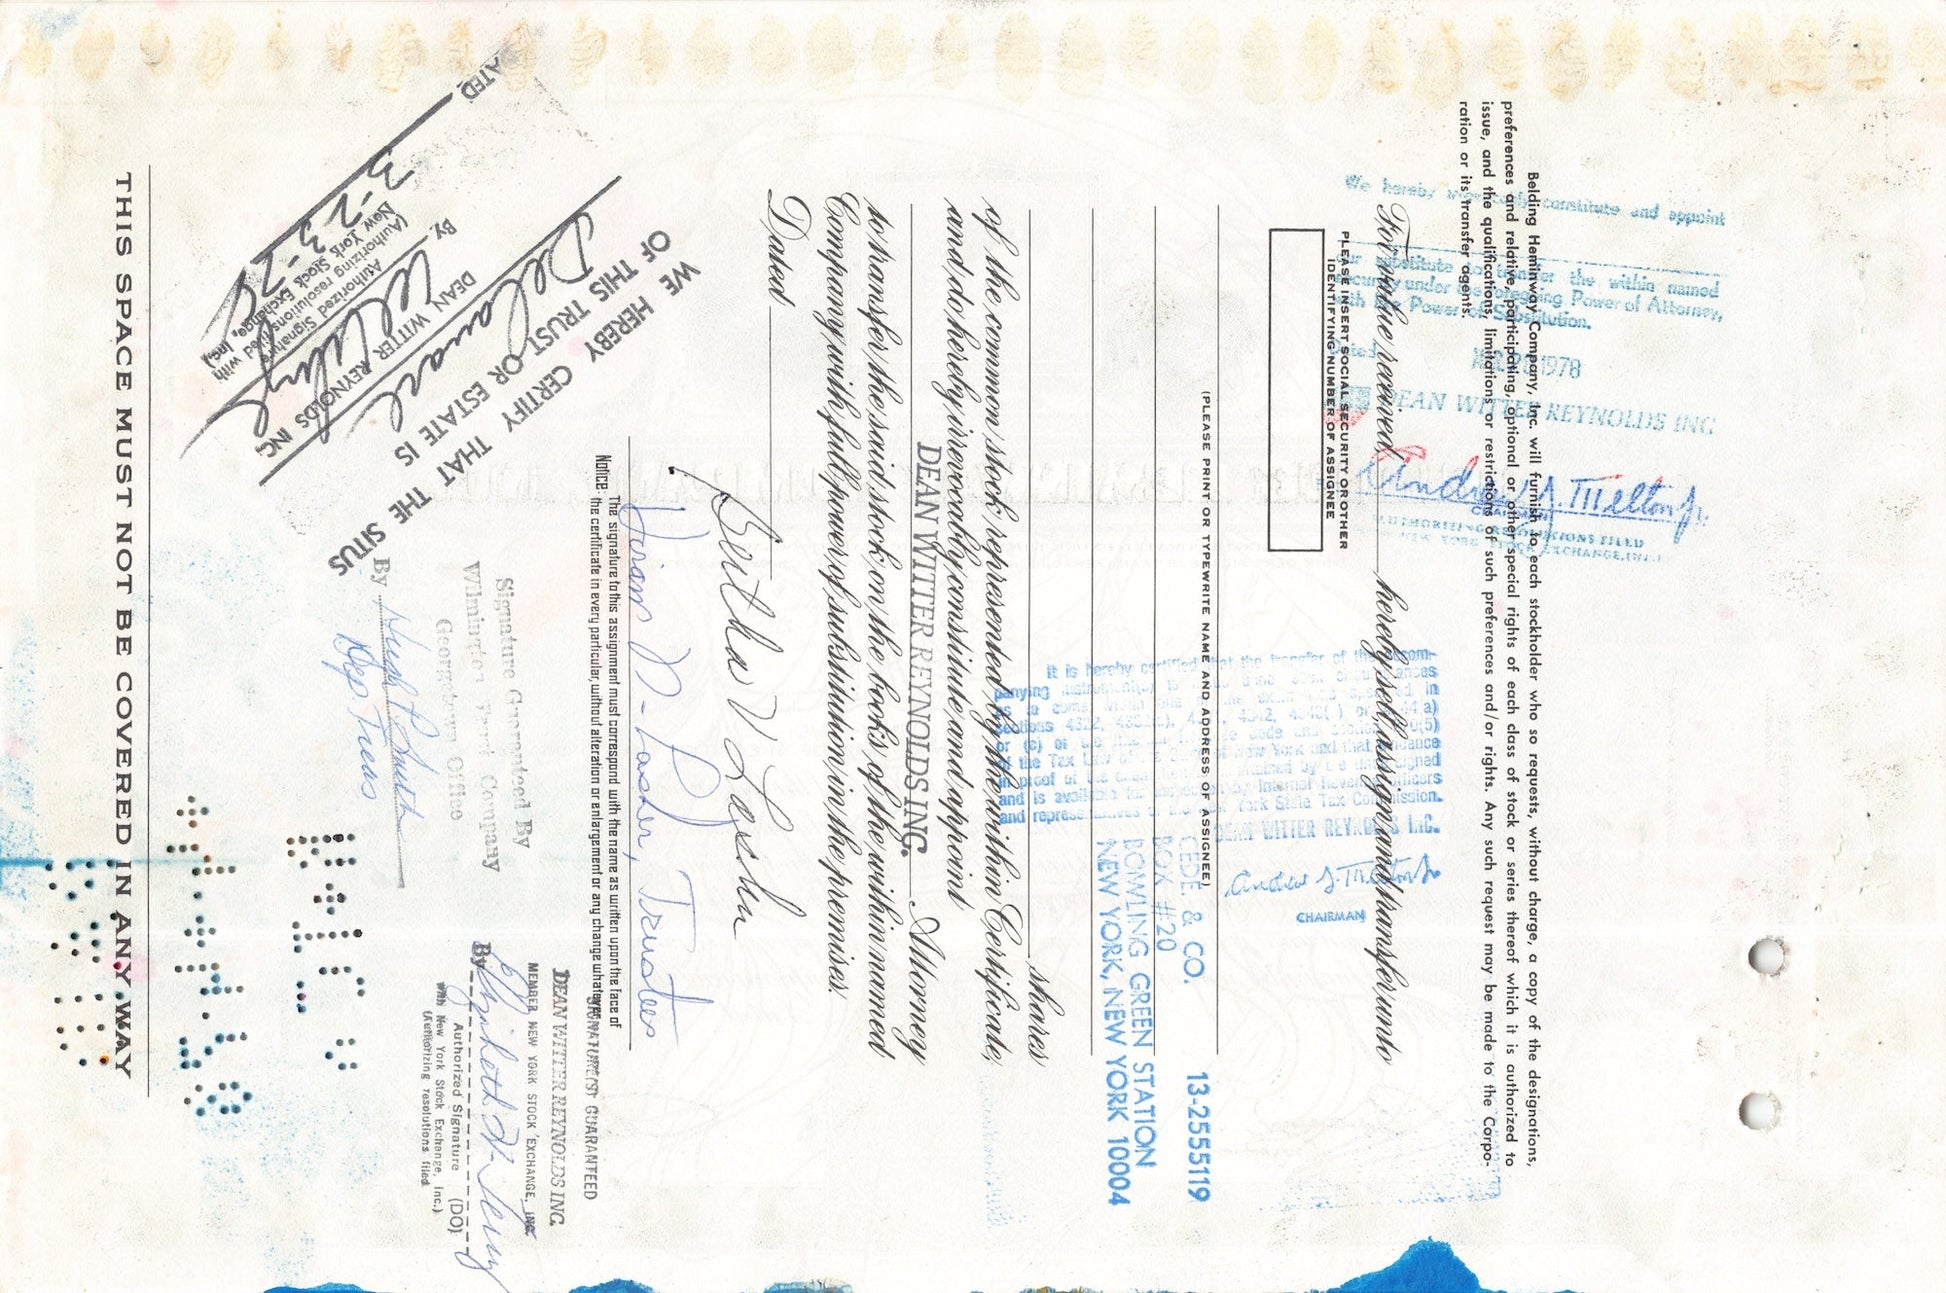 Belding Heminway Company, Inc. will furnish to each stockholder who so requests, without charge, a copy of the designations,
preferences and relative, participating, optional or other special rights of each class of stock or series thereof which it is authorized to
issue, and the qualifications, limitations or restrictions of such preferences and/or rights. Any such request may be made to the Corpo-
ration or its transfer agents.
We hereby constitute and appoint
substitute to transfer the within named
security under the foregoing Power of Attorney,
with Power of Substitution.
1978
DEAN WITTER REYNOLDS INC
Andrew J. Melton Jr.
CHAIRMAN
AUTHORIZING RESOLUTIONS FILED
NEW YORK STOCK EXCHANGE, INC.
For value received hereby sell, assign and transfer unto
PLEASE INSERT SOCIAL SECURITY OR OTHER
IDENTIFYING NUMBER OF ASSIGNEE
CEDE & CO. 13-2555119
BOX #20
BOWLING GREEN STATION
NEW YORK, NEW YORK 10004
(PLEASE PRINT OR TYPEWRITE NAME AND ADDRESS OF ASSIGNEE)
It is hereby certified that the transfer of the accom-
DEAN WITTER REYNOLDS INC.
Andrew J. Melton Jr
CHAIRMAN
shares
of the common stock represented by the within Certificate,
and do hereby irrevocably constitute and appoint
DEAN WITTER REYNOLDS INC. Attorney
to transfer the said stock on the books of the within named
Company with full power of substitution in the premises.
Dated
Bertha V Lasher
Trustee
Notice: The signature to this assignment must correspond with the name as written upon the face of
the certificate in every particular, without alteration or enlargement or any change whatever.
SIGNATURE(S) GUARANTEED
DEAN WITTER REYNOLDS INC.
MEMBER NEW YORK STOCK EXCHANGE, INC.
By
Authorized Signature (DO)
(Authorizing resolutions filed
with New York Stock Exchange, Inc.)
Signature Guaranteed By
Wilmington Trust Company
Georgetown Office
By
Dep Treas
WE HEREBY CERTIFY THAT THE SITUS
OF THIS TRUST OR ESTATE IS
Delaware
DEAN WITTER REYNOLDS INC
By
Authorized Signature
(Authorizing resolutions filed with
New York Stock Exchange, Inc.)
ATED 3-23-78
THIS SPACE MUST NOT BE COVERED IN ANY WAY